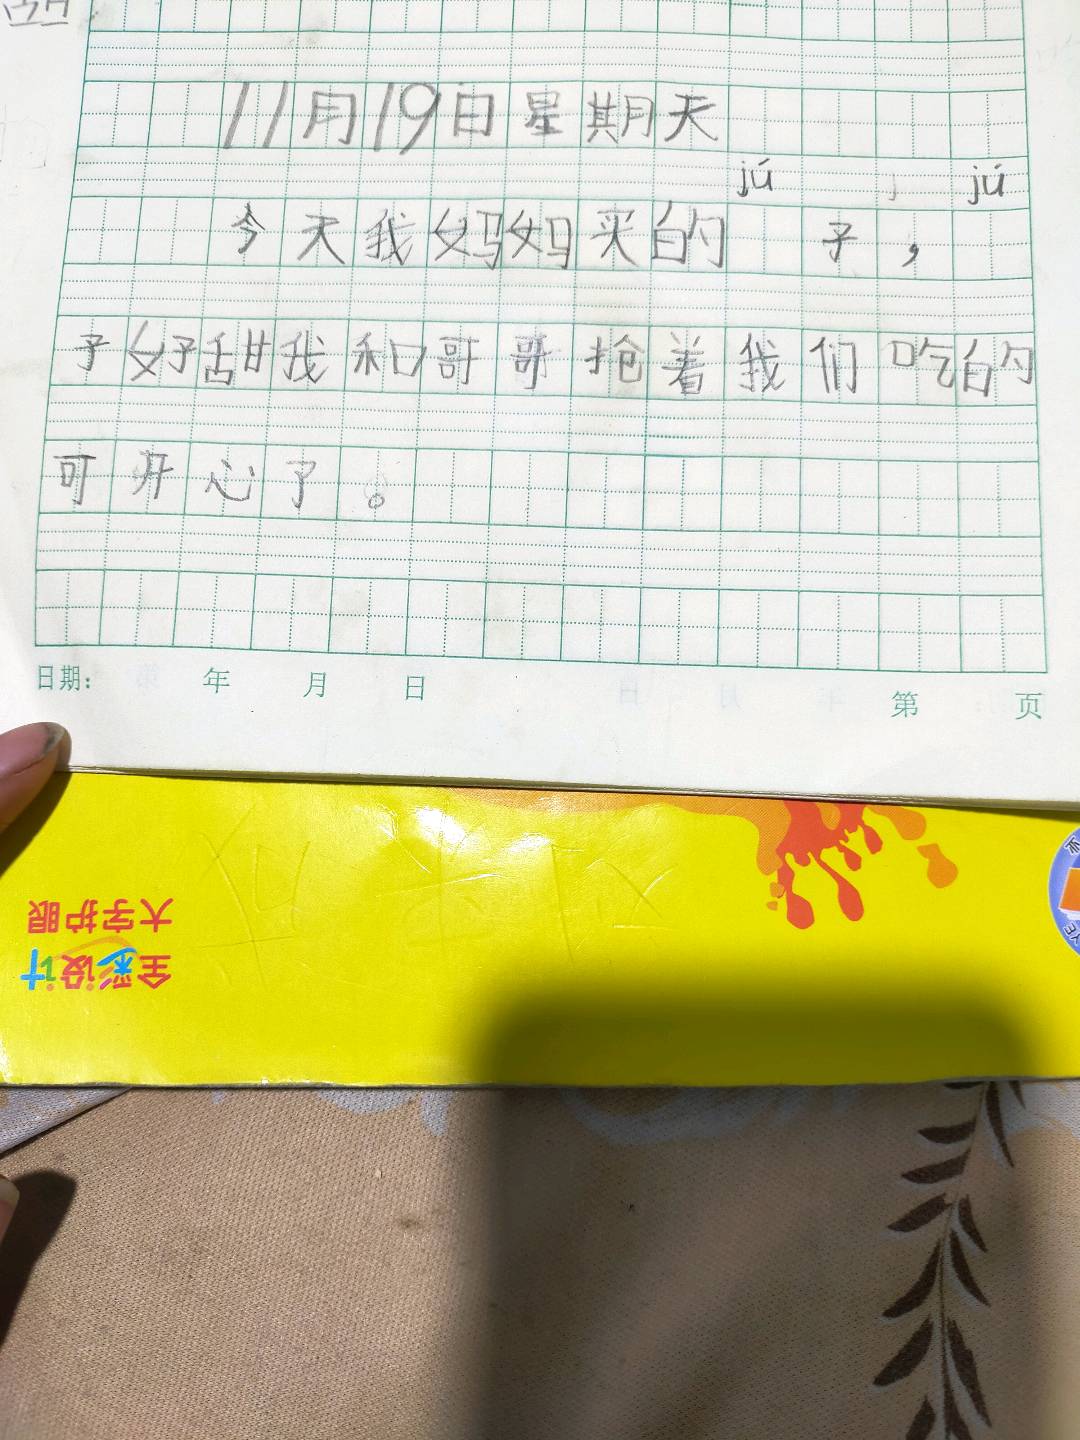 11月19日星期天
jú jú
今天我妈妈买的 子，
子好甜我和哥哥抢着我们吃的
可开心了。
日期： 年 月 日 第 页
大字护眼
全彩设计